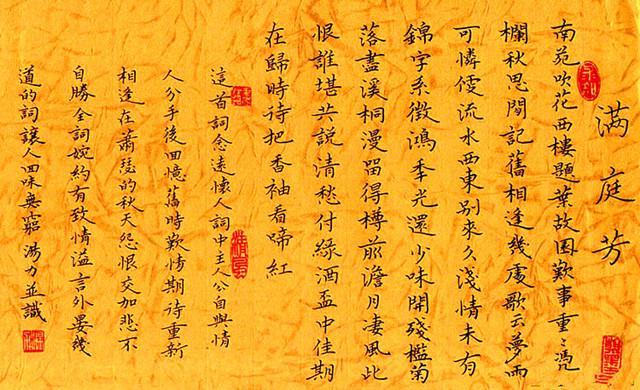 满庭芳
南苑吹花西樓題葉故園歡事重〻憑
欄秋思閒記舊相逢幾處歌云夢雨
可憐便流水西東別來久淺情未有
錦字系徵鴻季光還少味開殘檻菊
落盡溪桐漫留得樽前澹月凄風此
恨誰堪共説清愁付綠酒盃中佳期
在歸時待把香袖看啼紅
這首詞念遠懷人詞中主人公自與情
人分手後回憶舊時歡情期待重新
相逢在蕭瑟的秋天怨恨交加悲不
自勝全詞婉約有致情溢言外晏幾
道的詞讓人回味無窮 湯力並識